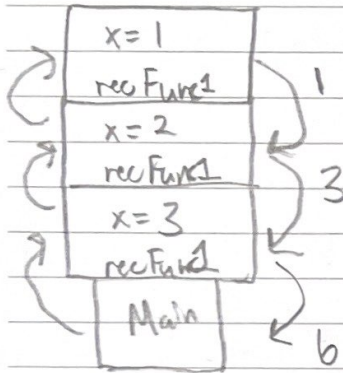 x=1
recFunc1
1
x=2
recFunc1
3
x=3
recFunc1
Main
6